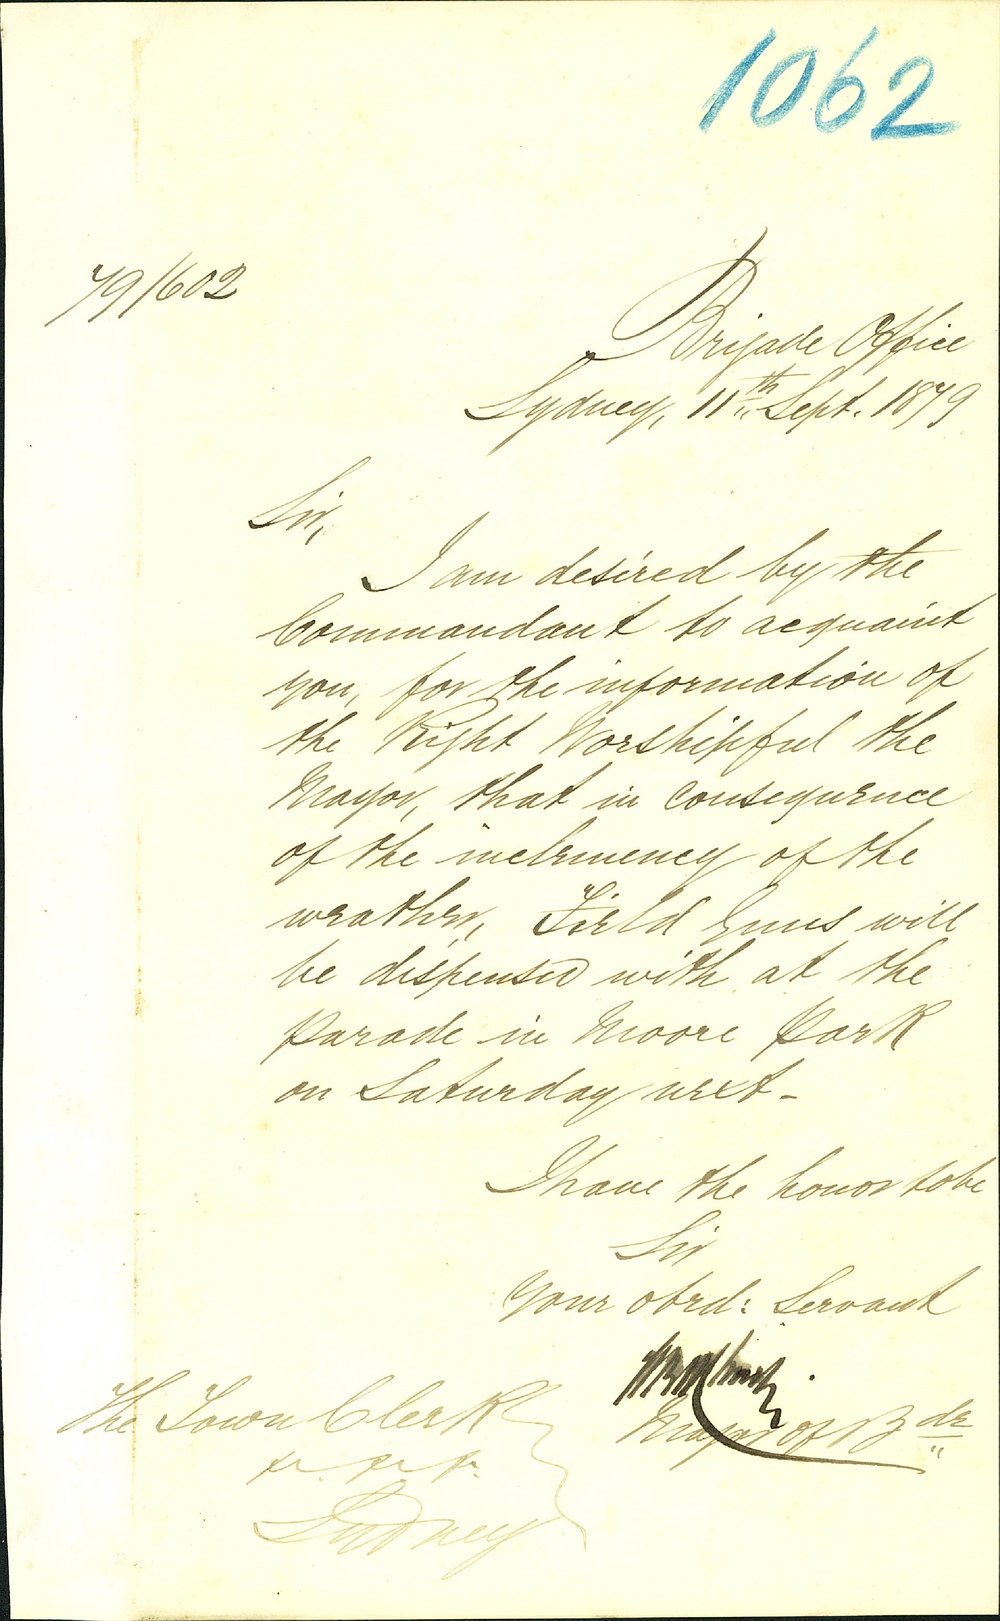 1062
79/602
Brigade Office
Sydney, 11th Sept. 1879
Sir,
I am desired by the
Commandant to acquaint
you, for the information of
the Right Worshipful the
Mayor, that in consequence
of the inclemency of the
weather, Field Guns will
be dispensed with at the
Parade in Moore Park
on Saturday next -
I have the honor to be
Sir
Your obed: Servant
Major of Bde
The Town Clerk
&c. &c. &c.
Sydney